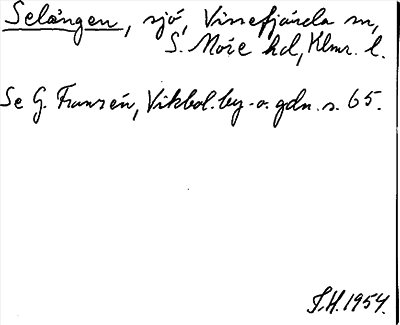 Selången, sjö, Vissefjärda sn,
S. Möre hd, Klmr. l.
Se G. Franzén, Vikbol. by- o. gdn. s. 65.
S.H. 1954.